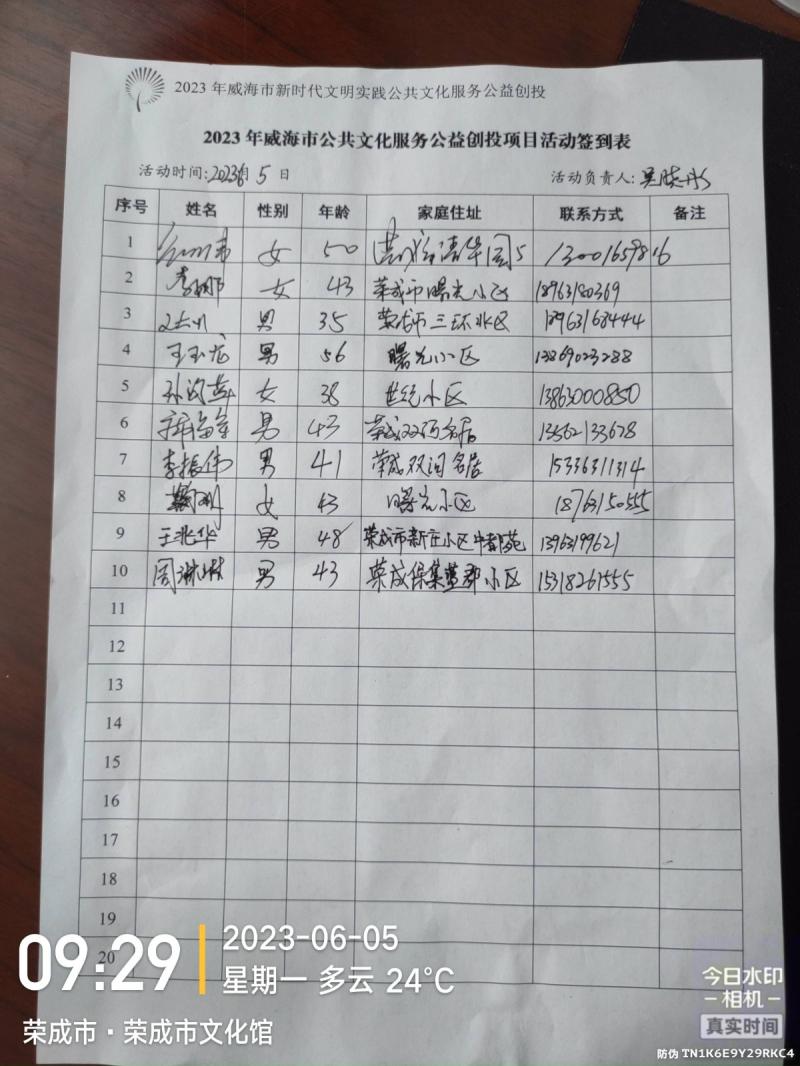 2023 年威海市新时代文明实践公共文化服务公益创投
2023 年威海市公共文化服务公益创投项目活动签到表
活动时间:2023年6月5日 活动负责人:
序号 姓名 性别 年龄 家庭住址 联系方式 备注
1 女 50 清华园 13001659816
2 李娜 女 43 荣成市曙光小区 18963180369
3 男 35 荣成市三环北区 18963168444
4 王玉龙 男 56 曙光小区 13869023288
5 女 38 世纪小区 13863000850
6 男 43 荣成双河名居 13562133678
7 李振伟 男 41 荣成双河名居 15336311314
8 女 43 曙光小区 18763150555
9 王兆华 男 48 荣成市新庄小区 13963199621
10 周 男 43 荣成保集蓝郡小区 15318261555
11
12
13
14
15
16
17
18
19
20
09:29
2023-06-05
星期一 多云 24°C
荣成市·荣成市文化馆
今日水印
-相机-
真实时间
防伪 TN1K6E9Y29RKC4